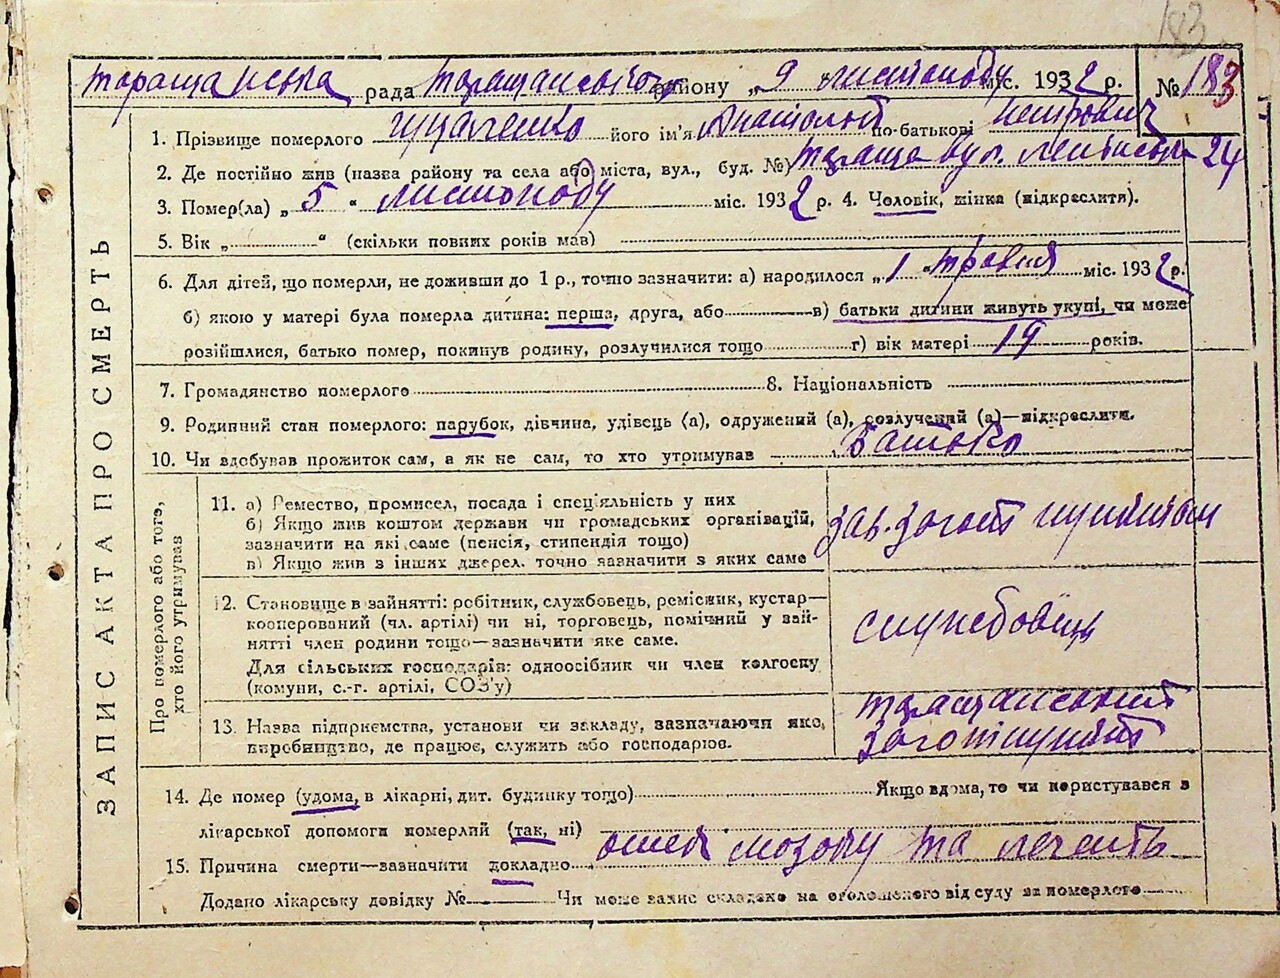 183
Таращанська рада Таращанського району „ 9 " листопаду міс. 1932 р. № 183
ЗАПИС АКТА ПРО СМЕРТЬ
1. Прізвище померлого його ім'я Анатолій по-батькові Петрович
2. Де постійно жив (назва району та села або міста, вул., буд. №) Тараща вул. Леніна 24
3. Помер(ла) „ 5 " листопаду міс. 1932 р. 4. Чоловік, жінка (підкреслити).
5. Вік „ " (скільки повних років мав)
6. Для дітей, що померли, не доживши до 1 р., точно зазначити: а) народилося „ 1 " травня міс. 1932 р.
б) якою у матері була померла дитина: перша, друга, або в) батьки дитини живуть укупі, чи може
розійшлися, батько помер, покинув родину, розлучилися тощо г) вік матері 19 років.
7. Громадянство померлого 8. Національність
9. Родинний стан померлого: парубок, дівчина, удівець (а), одружений (а), розлучений (а)—підкреслити.
10. Чи здобував прожиток сам, а як не сам, то хто утримував Батько
Про померлого або того,
хто його утримував
11. а) Ремество, промисел, посада і спеціяльність у них
б) Якщо жив коштом держави чи громадських організацій,
зазначити на які саме (пенсія, стипендія тощо)
в) Якщо жив з інших джерел, точно зазначити з яких саме
зав. загот пунктом
12. Становище в зайнятті: робітник, службовець, ремісник, кустар—
кооперований (чл. артілі) чи ні, торговець, помічний у зай-
нятті член родини тощо—зазначити яке саме.
Для сільських господарів: одноосібник чи член колгоспу
(комуни, с.-г. артілі, СОЗ'у)
службовець
13. Назва підприємства, установи чи закладу, зазначаючи яке,
виробництво, де працює, служить або господарює.
Таращанський
заготпункт
14. Де помер (удома, в лікарні, дит. будинку тощо) Якщо вдома, то чи користувався з
лікарської допомоги померлий (так, ні)
15. Причина смерти—зазначити докладно мозоку та легень
Додано лікарську довідку № Чи може запис складено на оголошеного від суду за померлого